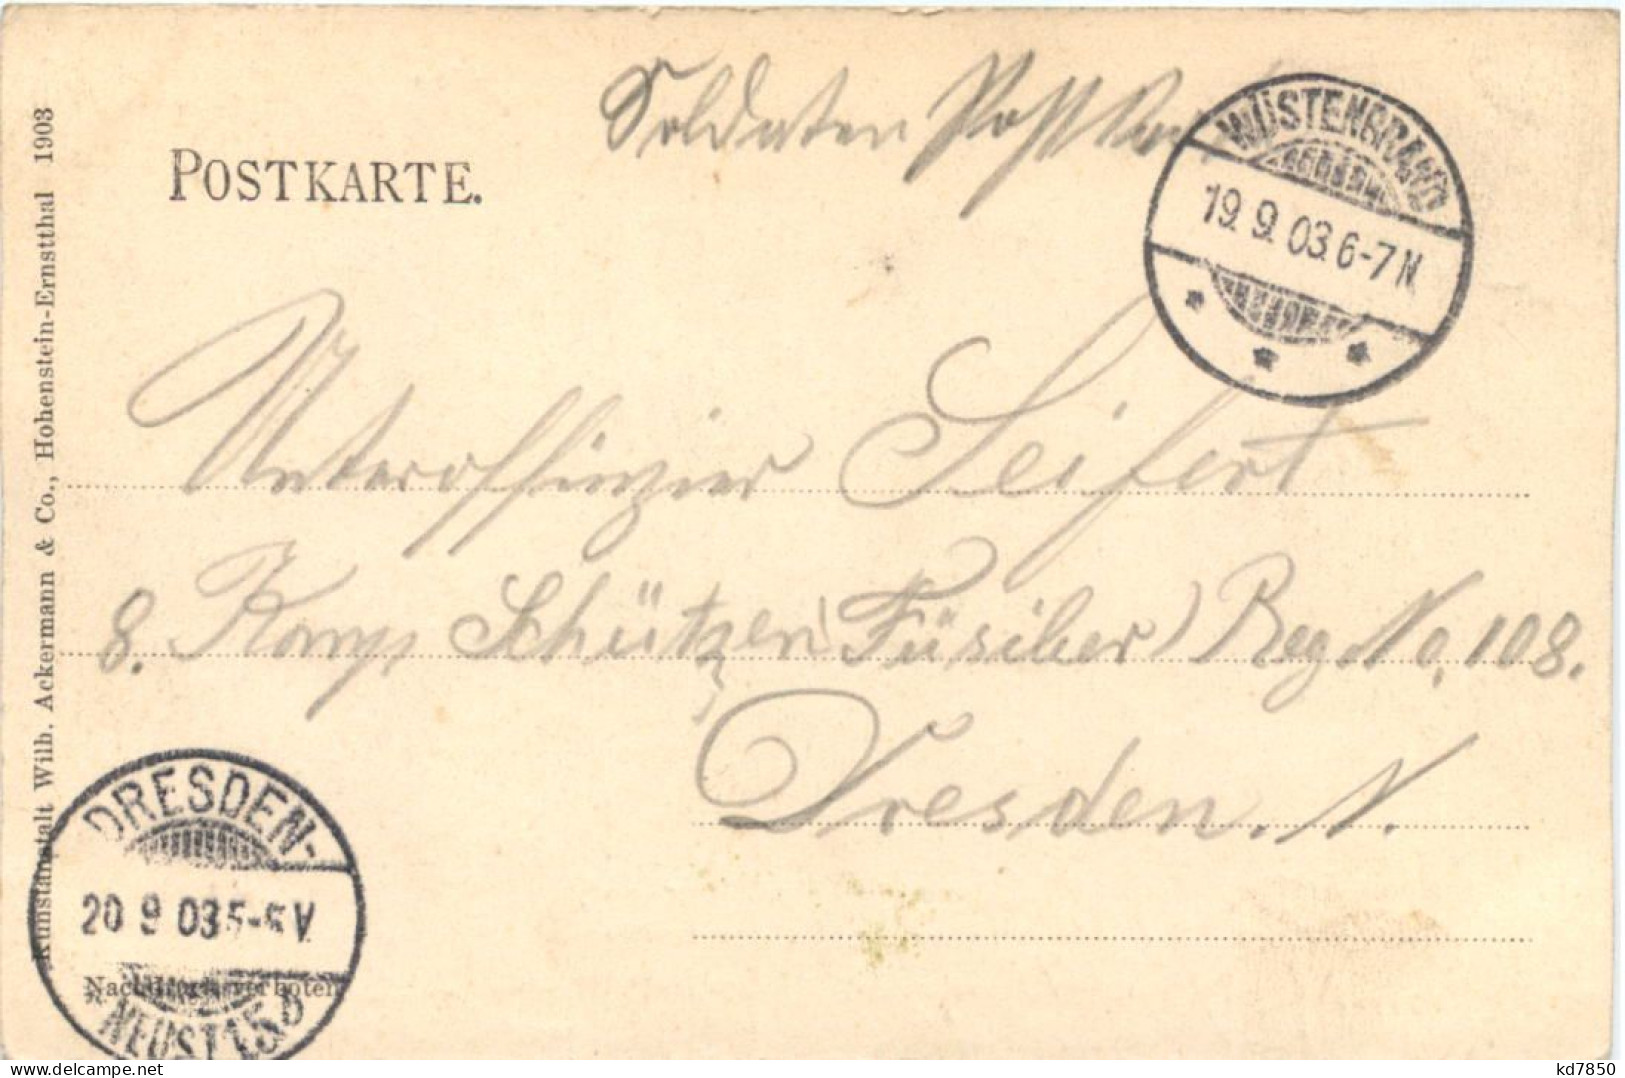 Soldaten Postkar
POSTKARTE.
WÜSTENBRAND
19. 9. 03. 6-7 N
Kunstanstalt Wilh. Ackermann & Co., Hohenstein-Ernstthal 1903
Unteroffizier Seifert
8. Komp. Schützen (Füsilier) Reg. No. 108.
Dresden. N.
DRESDEN-
20 9 03 5-6 V
NEUST. 15 b
Nachdruck verboten
kd7850